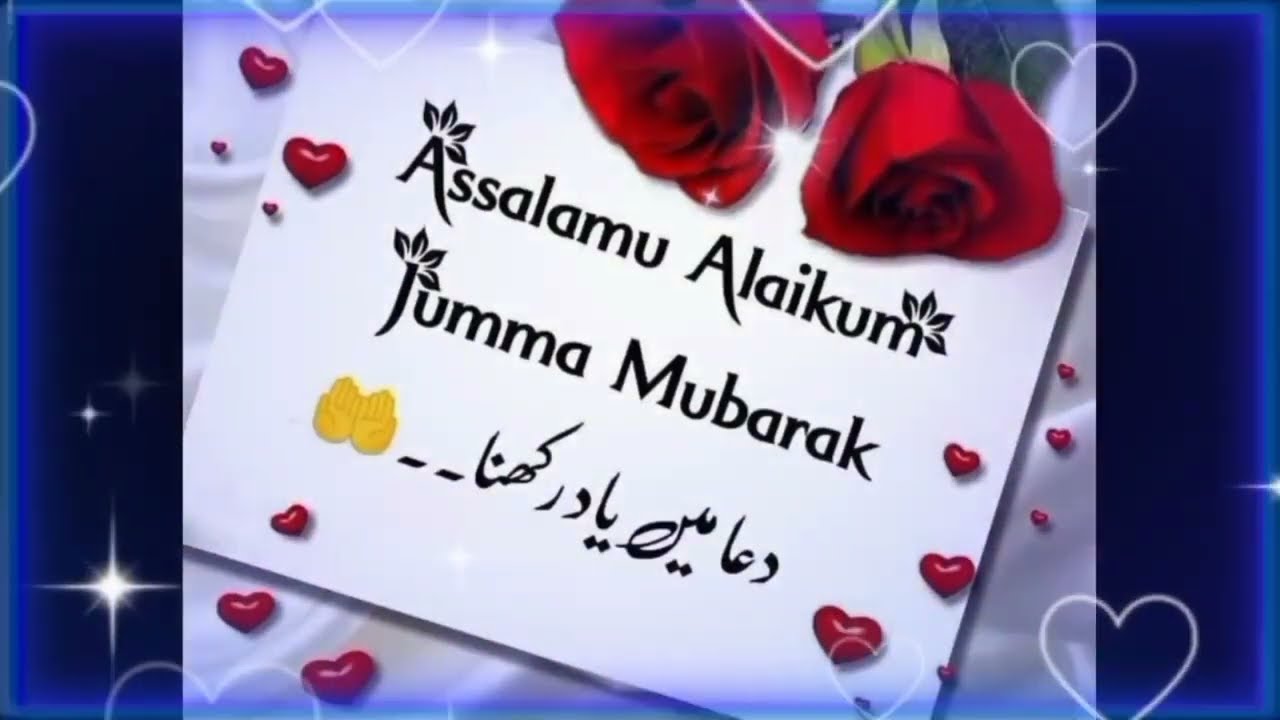 Assalamu Alaikum
Jumma Mubarak
دعا میں یاد رکھنا۔۔